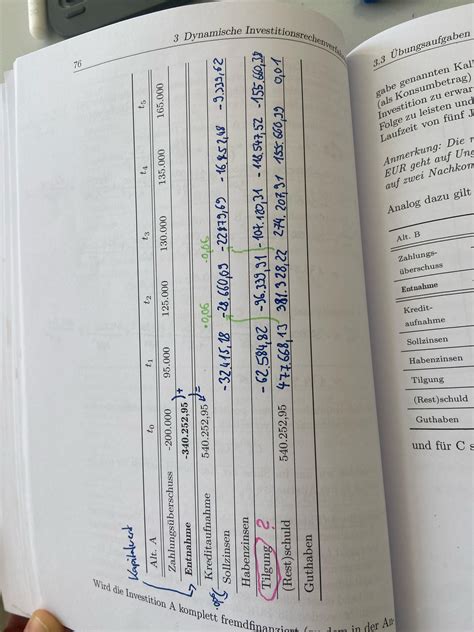 76
3 Dynamische Investitionsrechenverfa
Kapitalwert
Alt. A t₀ t₁ t₂ t₃ t₄ t₅
Zahlungsüberschuss -200.000 95.000 125.000 130.000 135.000 165.000
Entnahme -340.252,95 )+
Kreditaufnahme 540.252,95 =
·0,06 ·0,06
Sollzinsen -32.415,18 -28.660,09 -22879,69 -16.452,48 -9.339,62
Habenzinsen
Tilgung ? -62.584,82 -96.339,91 -107.120,31 -118.547,52 -155.660,38
(Rest)schuld 540.252,95 477.668,13 381.328,22 274.207,91 155.660,39 0,01
Guthaben
Wird die Investition A komplett fremdfinanziert (zu dem in der
3.3 Übungsaufgaben
gabe genannten Kal
(als Konsumbetrag)
Investition zu erwar
Folge zu leisten und
Laufzeit von fünf J
Anmerkung: Die r
EUR geht auf Ung
auf zwei Nachkom
Analog dazu gilt
Alt. B
Zahlungs-
überschuss
Entnahme
Kredit-
aufnahme
Sollzinsen
Habenzinsen
Tilgung
(Rest)schuld
Guthaben
und für C s